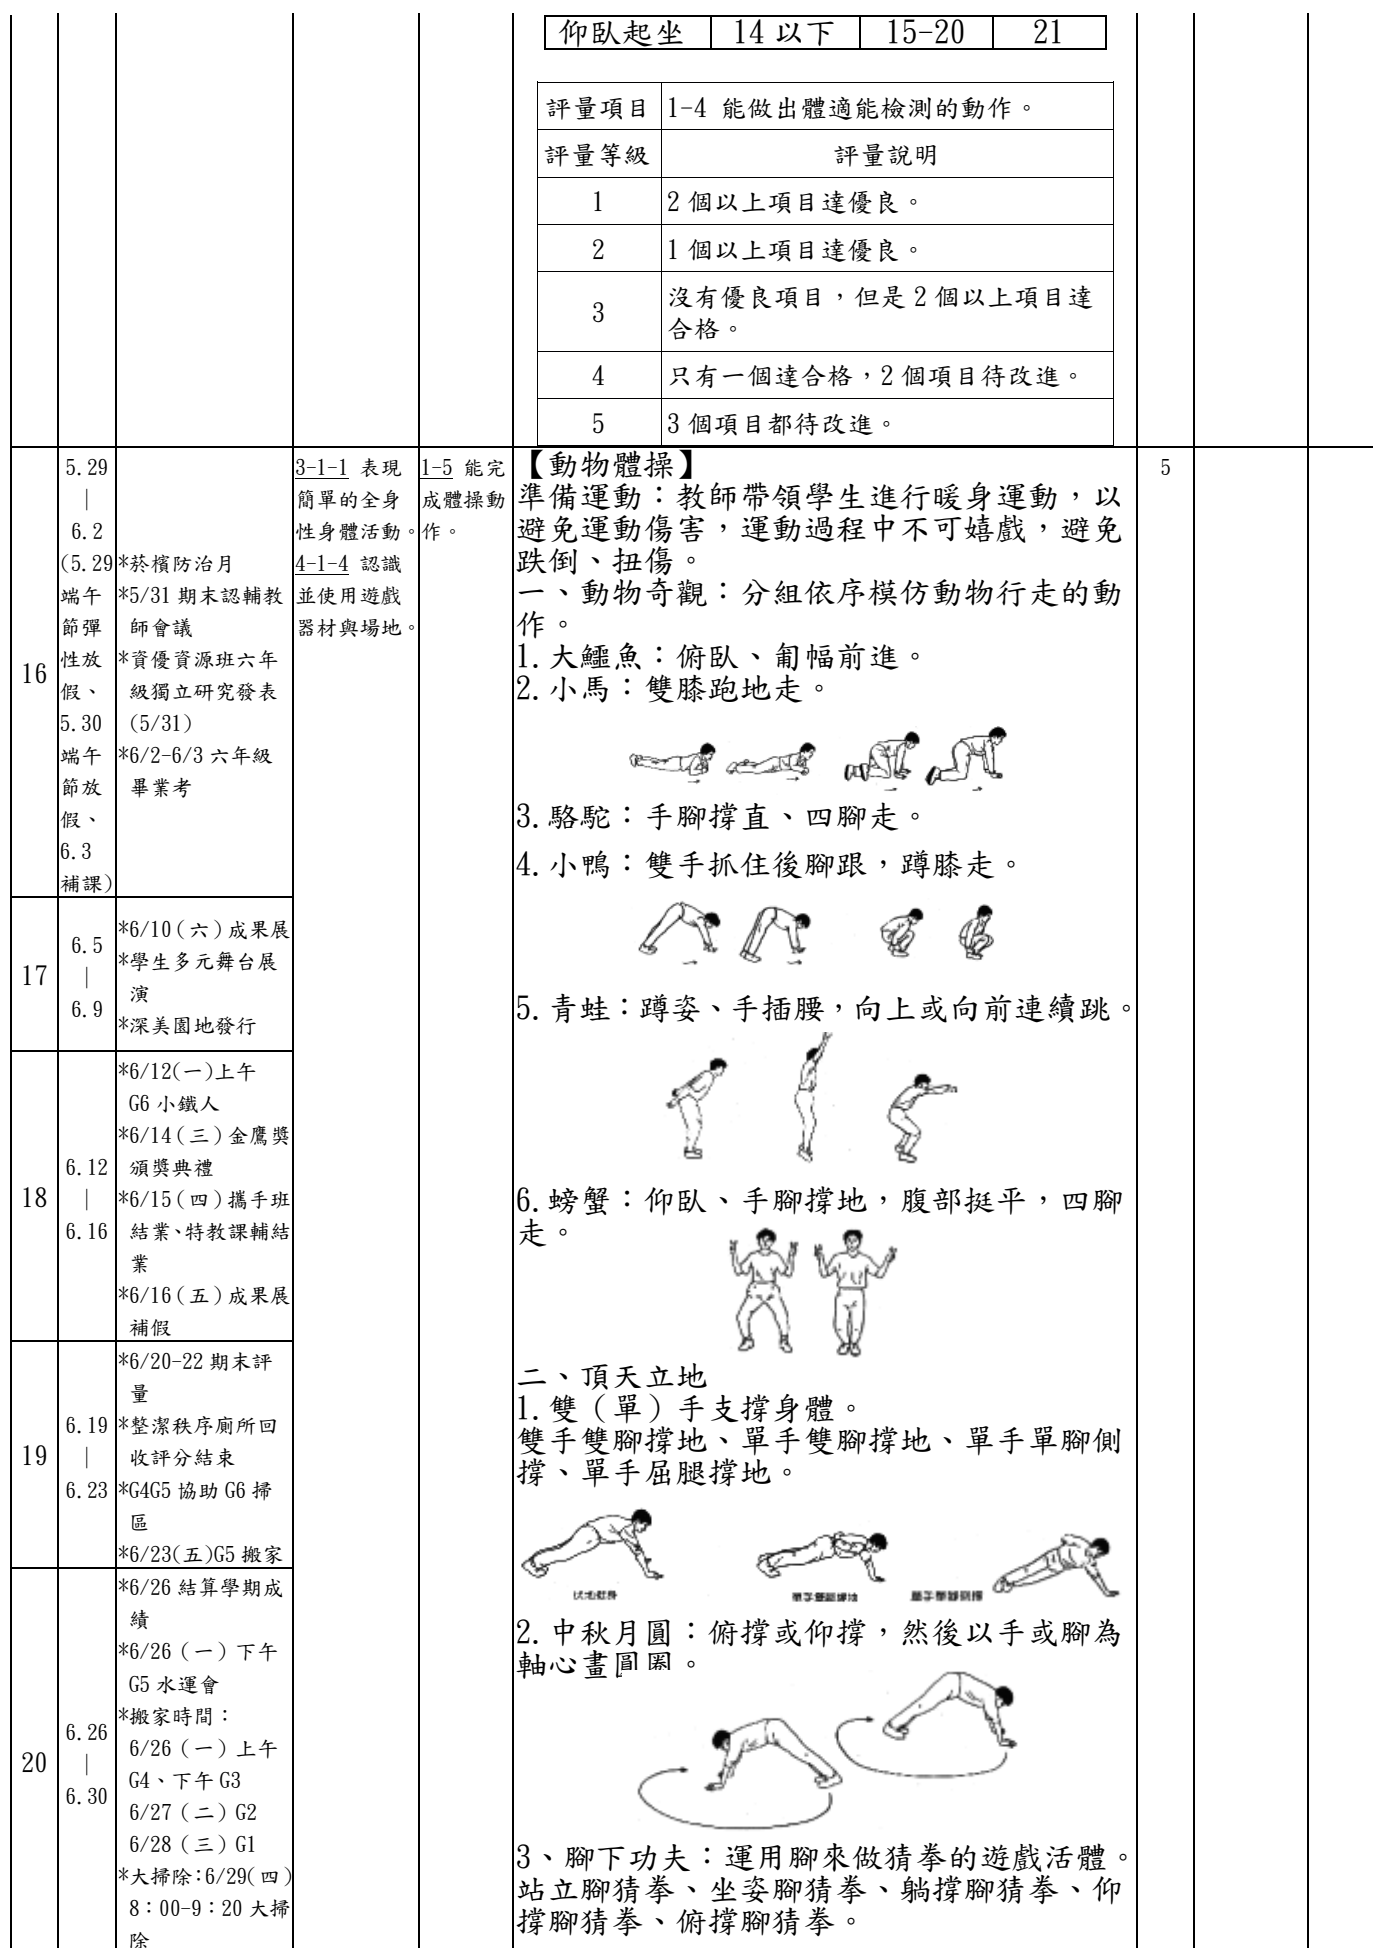 仰臥起坐 14 以下 15-20 21
評量項目 1-4 能做出體適能檢測的動作。
評量等級 評量說明
1 2 個以上項目達優良。
2 1 個以上項目達優良。
3 沒有優良項目，但是 2 個以上項目達
合格。
4 只有一個達合格，2 個項目待改進。
5 3 個項目都待改進。
16
5.29
|
6.2
(5.29
端午
節彈
性放
假、
5.30
端午
節放
假、
6.3
補課)
*菸檳防治月
*5/31 期末認輔教
師會議
*資優資源班六年
級獨立研究發表
(5/31)
*6/2-6/3 六年級
畢業考
3-1-1 表現
簡單的全身
性身體活動。
4-1-4 認識
並使用遊戲
器材與場地。
1-5 能完
成體操動
作。
【動物體操】
準備運動：教師帶領學生進行暖身運動，以
避免運動傷害，運動過程中不可嬉戲，避免
跌倒、扭傷。
一、動物奇觀：分組依序模仿動物行走的動
作。
1.大鱷魚：俯臥、匍幅前進。
2.小馬：雙膝跑地走。
3.駱駝：手腳撐直、四腳走。
4.小鴨：雙手抓住後腳跟，蹲膝走。
5.青蛙：蹲姿、手插腰，向上或向前連續跳。
6.螃蟹：仰臥、手腳撐地，腹部挺平，四腳
走。
二、頂天立地
1.雙（單）手支撐身體。
雙手雙腳撐地、單手雙腳撐地、單手單腳側
撐、單手屈腿撐地。
伏地挺身 單手雙腳撐地 單手單腳側撐
2.中秋月圓：俯撐或仰撐，然後以手或腳為
軸心畫圓圈。
3、腳下功夫：運用腳來做猜拳的遊戲活體。
站立腳猜拳、坐姿腳猜拳、躺撐腳猜拳、仰
撐腳猜拳、俯撐腳猜拳。
5
17
6.5
|
6.9
*6/10（六）成果展
*學生多元舞台展
演
*深美園地發行
18
6.12
|
6.16
*6/12(一)上午
G6 小鐵人
*6/14（三）金鷹獎
頒獎典禮
*6/15（四）攜手班
結業、特教課輔結
業
*6/16（五）成果展
補假
19
6.19
|
6.23
*6/20-22 期末評
量
*整潔秩序廁所回
收評分結束
*G4G5 協助 G6 掃
區
*6/23(五)G5 搬家
20
6.26
|
6.30
*6/26 結算學期成
績
*6/26（一）下午
G5 水運會
*搬家時間：
6/26（一）上午
G4、下午 G3
6/27（二）G2
6/28（三）G1
*大掃除:6/29(四)
8：00-9：20 大掃
除